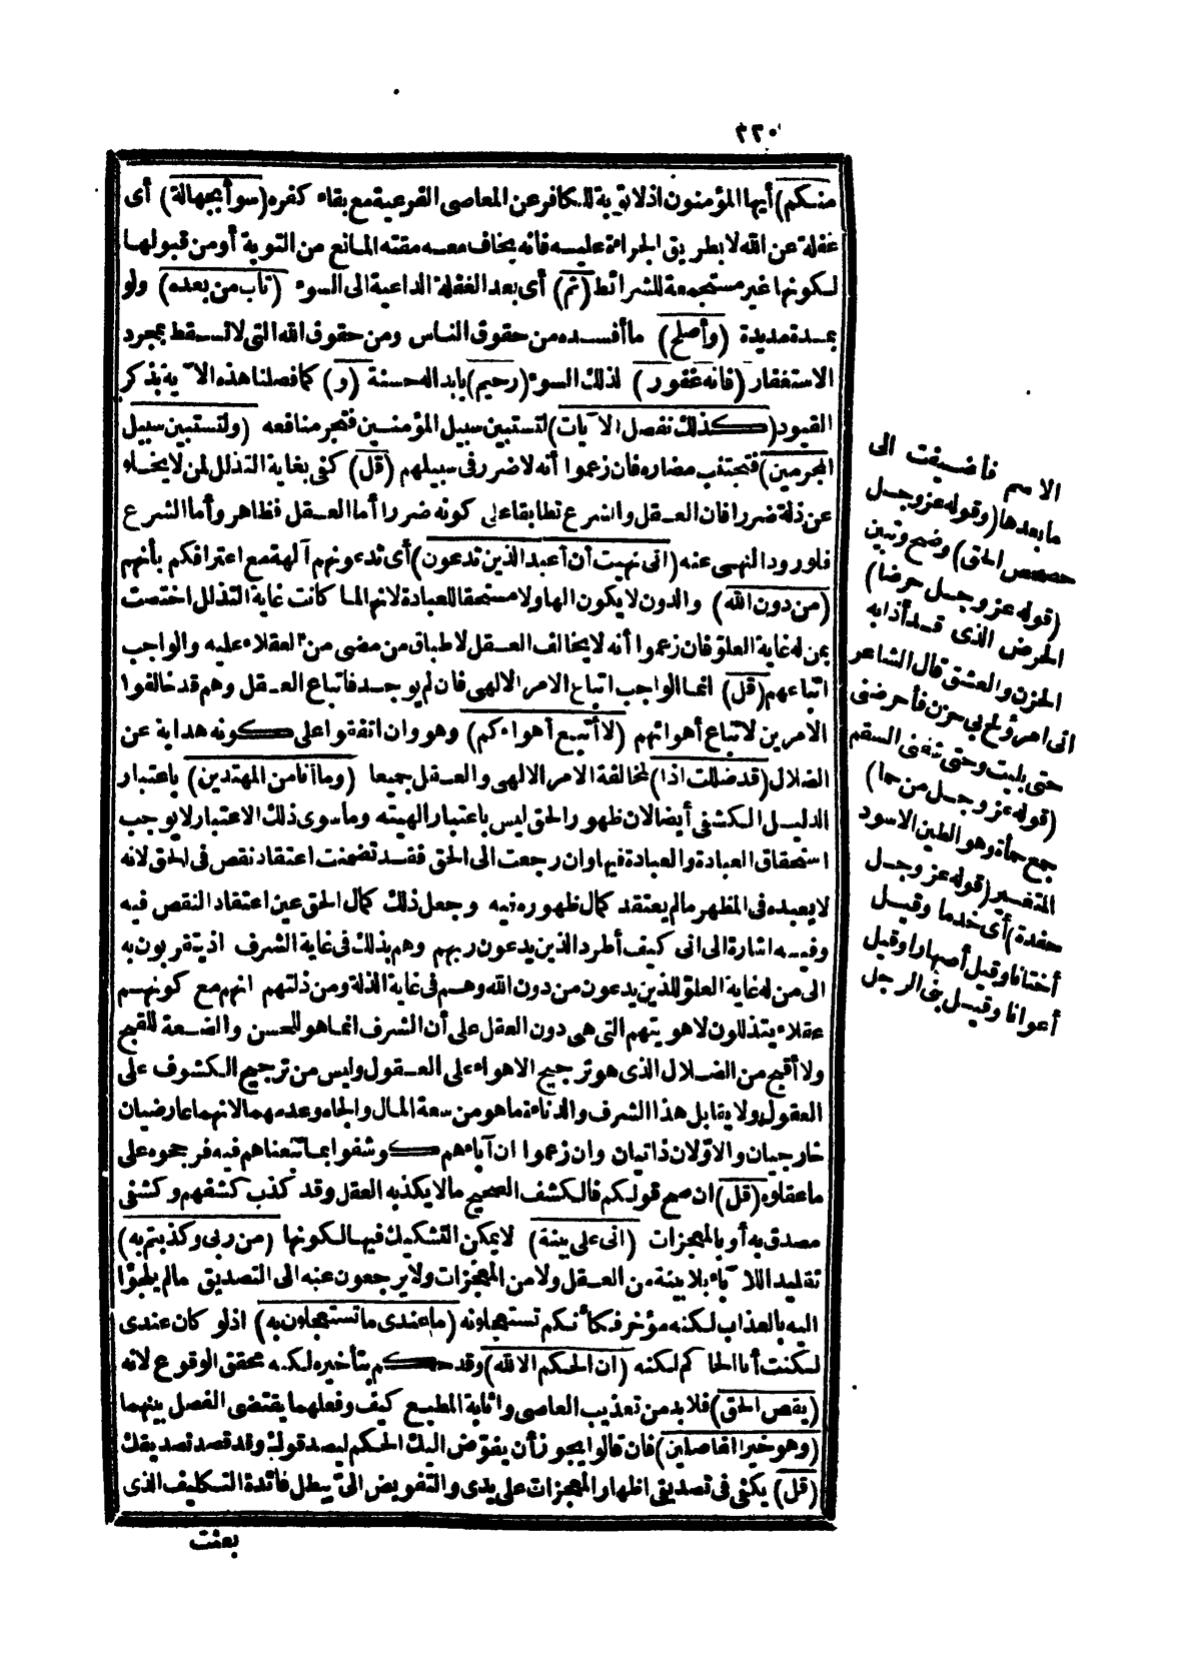 ٢٢٠
منكم) أيها المؤمنون اذ لا توبة للكافر عن المعاصى الفرعية مع بقاء كفره (سوأ بجهالة) أى
غفلة عن الله لا بطريق الجراءة عليه فانه يخاف معه مقته المانع من التوبة أو من قبولها
لكونها غير مستجمعة للشرائط (ثم) أى بعد الغفلة الداعية الى السوء (تاب من بعده) ولو
بمدة مديدة (وأصلح) ما أفسده من حقوق الناس ومن حقوق الله التى لا تسقط بمجرد
الاستغفار (فانه غفور) لذلك السوء (رحيم) بابداله حسنة (و) كما فصلنا هذه الآية بذكر
القيود (كذلك نفصل الآيات) لتستبين سبيل المؤمنين فتجر منافعه (ولتستبين سبيل
المجرمين) فتجتنب مضاره فان زعموا أنه لا ضرر فى سبيلهم (قل) كفى بغاية التذلل لمن لا يخلو
عن ذلة ضررا فان العقل والشرع تطابقا على كونه ضررا أما العقل فظاهر وأما الشرع
فلورود النهى عنه (انى نهيت أن أعبد الذين تدعون) أى تدعونهم آلهة مع اعترافكم بأنهم
(من دون الله) والدون لا يكون الها ولا مستحقا للعبادة لانها لما كانت غاية التذلل اختصت
بمن له غاية العلو فان زعموا أنه لا يخالف العقل لاطباق من مضى من العقلاء عليه والواجب
اتباعهم (قل) انما الواجب اتباع الامر الالهى فان لم يوجد فاتباع العقل وهم قد خالفوا
الامرين لاتباع أهوائهم (لا أتبع أهواءكم) وهو وان اتفقوا على كونه هداية عن
الضلال (قد ضللت اذا) لمخالفة الامر الالهى والعقل جميعا (وما أنا من المهتدين) باعتبار
الدليل الكشفى أيضا لان ظهور الحق ليس باعتبار الهيته وما سوى ذلك الاعتبار لا يوجب
استحقاق العبادة والعبادة فيها وان رجعت الى الحق فقد تضمنت اعتقاد نقص فى الحق لانه
لا يعبده فى المظهر ما لم يعتقد كمال ظهوره فيه وجعل ذلك كمال الحق عين اعتقاد النقص فيه
وفيه اشارة الى انى كيف أطرد الذين يدعون ربهم وهم بذلك فى غاية الشرف اذ يتقربون به
الى من له غاية العلو للذين يدعون من دون الله وهم فى غاية الذلة ومن ذلتهم انهم مع كونهم
عقلاء يتذللون لاهويتهم التى هى دون العقل على أن الشرف انما هو للحسن والضعة للقبح
ولا أقبح من الضلال الذى هو ترجيح الاهواء على العقول وليس من ترجيح الكشوف على
العقول ولا يقابل هذا الشرف والدناءة ما هو من سعة المال والجاه وعدمهما لانهما عارضيان
خارجيان والاولان ذاتيان وان زعموا ان آباءهم كوشفوا بما تتبعناهم فيه فرجحوه على
ما عقلوه (قل) ان صح قولكم فالكشف الصحيح ما لا يكذبه العقل وقد كذب كشفهم وكشفى
مصدق به أو بالمعجزات (انى على بينة) لا يمكن التشكيك فيها لكونها (من ربى وكذبتم به)
تقليدا للآباء بلا بينة من العقل ولا من المعجزات ولا يرجعون عنه الى التصديق ما لم يلجؤا
اليه بالعذاب لكنه مؤخر فكأنكم تستعجلونه (ما عندى ما تستعجلون به) اذ لو كان عندى
لكنت أنا الحاكم لكنه (ان الحكم الا لله) وقد حكم بتأخيره لكنه محقق الوقوع لانه
(يقص الحق) فلا بد من تعذيب العاصى واثابة المطيع كيف وفعلهما يقتضى الفصل بينهما
(وهو خير الفاصلين) فان قالوا يجوز أن يفوّض اليك الحكم ليصدقولك وقد قصد تصديقك
(قل) يكفى فى تصديقى اظهار المعجزات على يدى والتفويض الىّ يبطل فائدة التكليف الذى
بعثت
الاسم فأضيفت الى
ما بعدها (وقوله عز وجل
حصحص الحق) وضح وتبين
(قوله عز وجل حرضا)
الحرض الذى قد أذابه
الحزن والعشق قال الشاعر
انى امرؤ لج بى حزن فأحرضنى
حتى بليت وحتى شفنى السقم
(قوله عز وجل من حما)
جمع حمأة وهو الطين الاسود
المتغير (قوله عز وجل
حفدة) أى خدما وقيل
أختانا وقيل أصهارا وقيل
أعوانا وقيل بنى الرجل